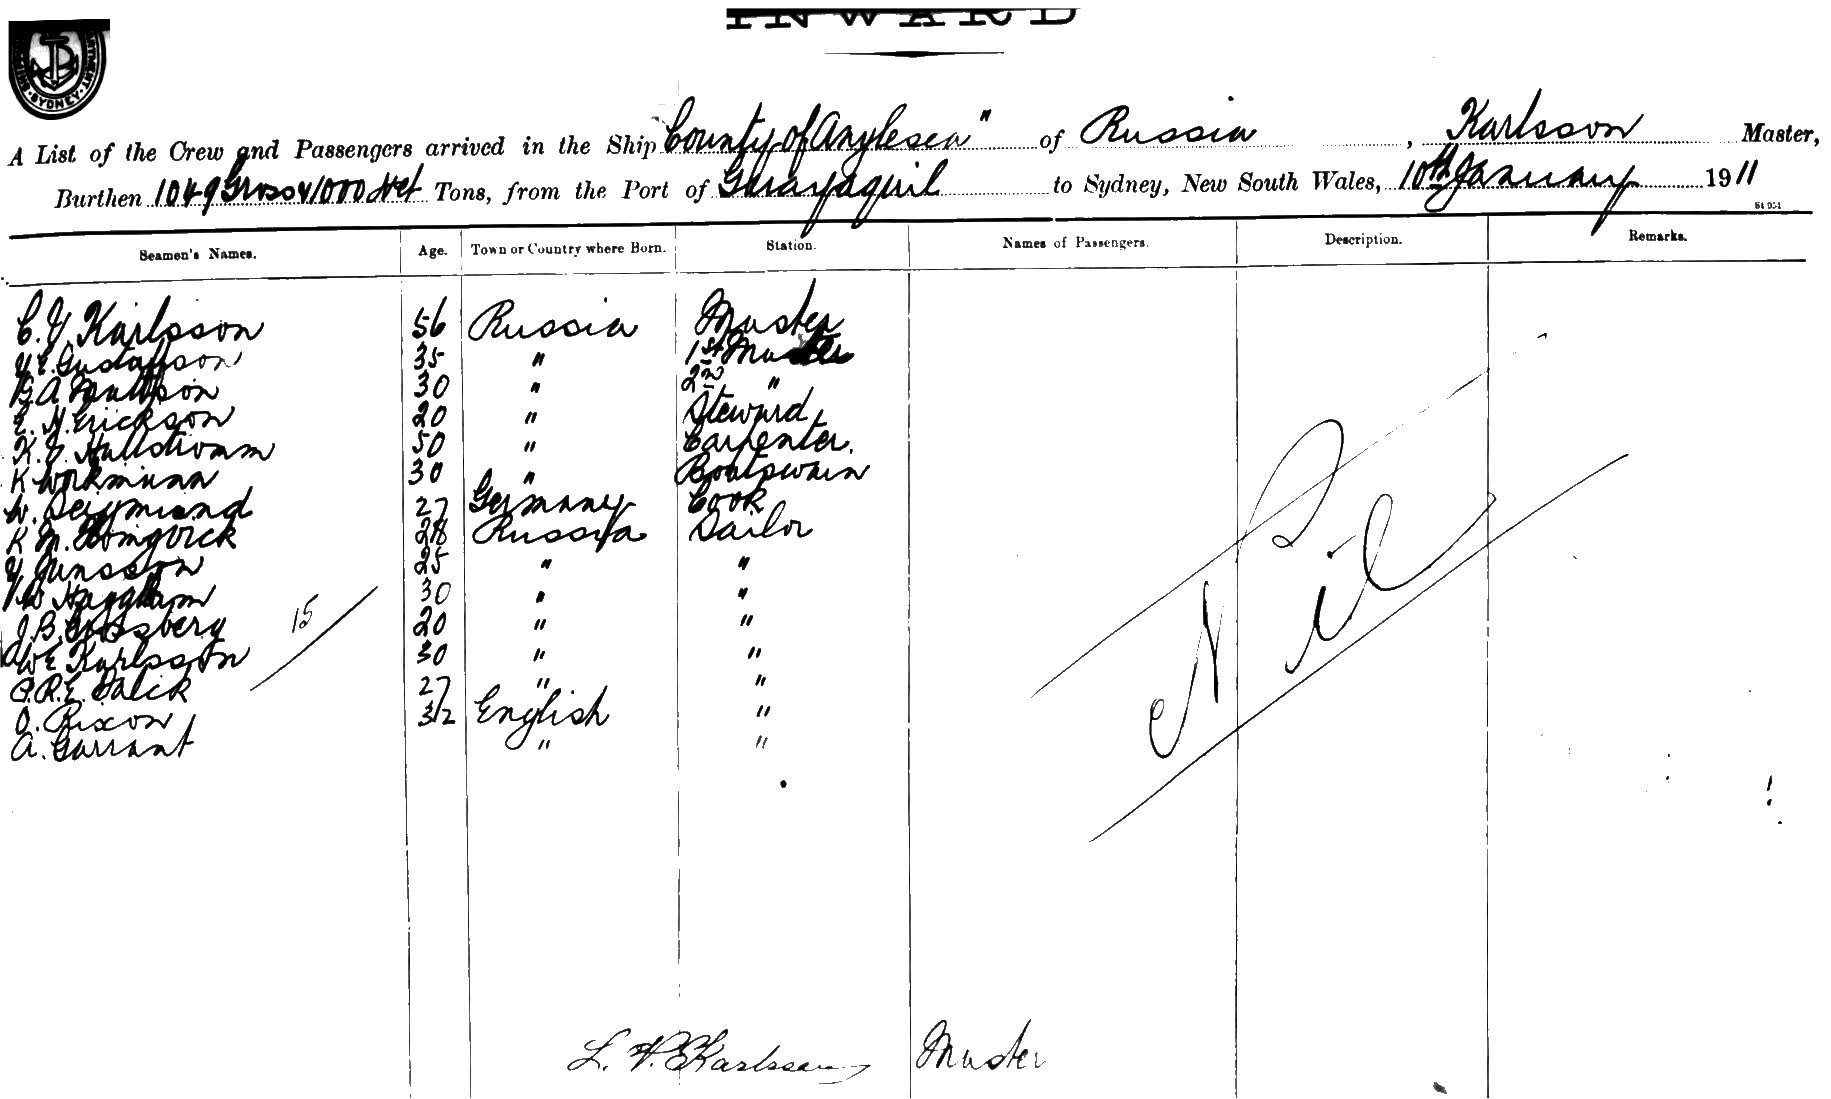 INWARD
SYDNEY
A List of the Crew and Passengers arrived in the Ship County of Anglesea" of Russia, Karlsson Master,
Burthen 1049 Gross 1000 Net Tons, from the Port of Guayaquil to Sydney, New South Wales, 10th January 1911
Seamen's Names. Age. Town or Country where Born. Station. Names of Passengers. Description. Remarks.
Karlsson 56 Russia Master
Gustafsson 35 " 1st
G. A. Mattson 30 " 2nd "
E. H. Erickson 20 " Steward
K. Hallstromm 50 " Carpenter.
K Workmann 30 " Boatswain
W. Seymiand 27 Germany Cook
K M. 28 Russia Sailor
Junsson 25 " "
Haggblom 30 " "
J. B. 20 " "
W E Karlsson 30 " "
R. E. Falck 27 " "
O. Rixon 32 English "
A. Garrant " "
15
Nil
Karlsson Master